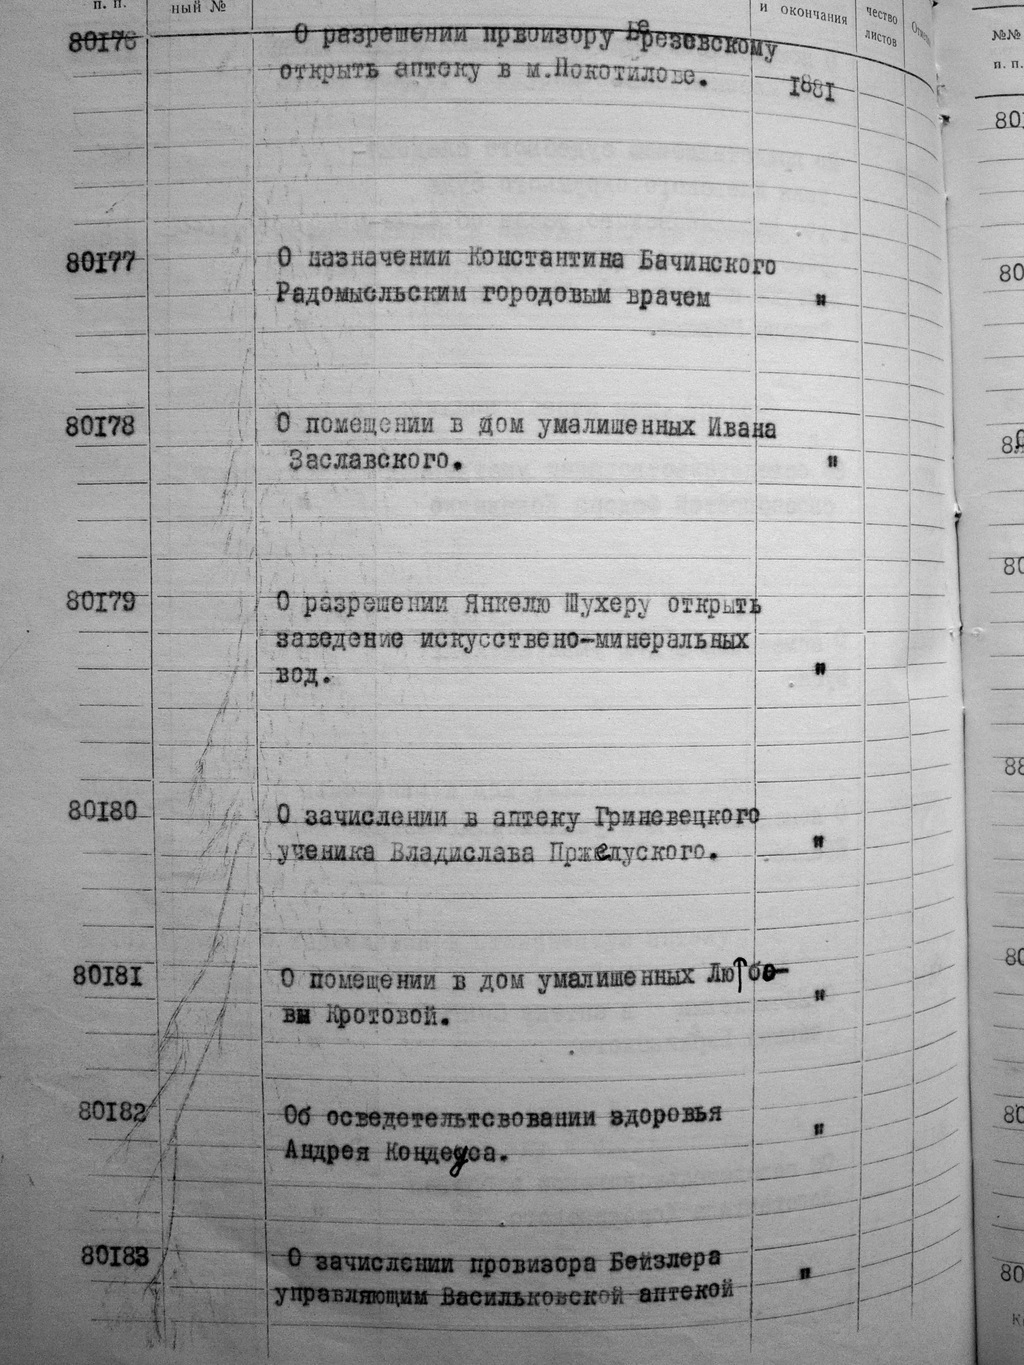 п. п. ный № и окончания чество листов
80176 О разрешении првоизору Березовскому
открыть аптеку в м.Покотилове. 1881
80177 О назначении Константина Бачинского
Радомысльским городовым врачем "
80178 О помещении в дом умалишенных Ивана
Заславского. "
80179 О разрешении Янкелю Шухеру открыть
заведение искусствено-минеральных
вод. "
80180 О зачислении в аптеку Гриневецкого
ученика Владислава Пржелуского. "
80181 О помещении в дом умалишенных Любо-
вы Кротовой. "
80182 Об осведетельтсвовании здоровья
Андрея Кондеуса. "
80183 О зачислении провизора Бейзлера
управляющим Васильковской аптекой "
№№
п. п.